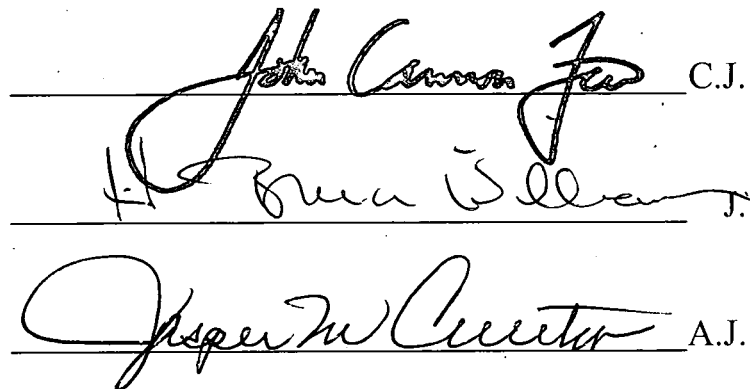 John Cannon Few C.J.
H. Bruce Williams J.
Jasper M Cureton A.J.